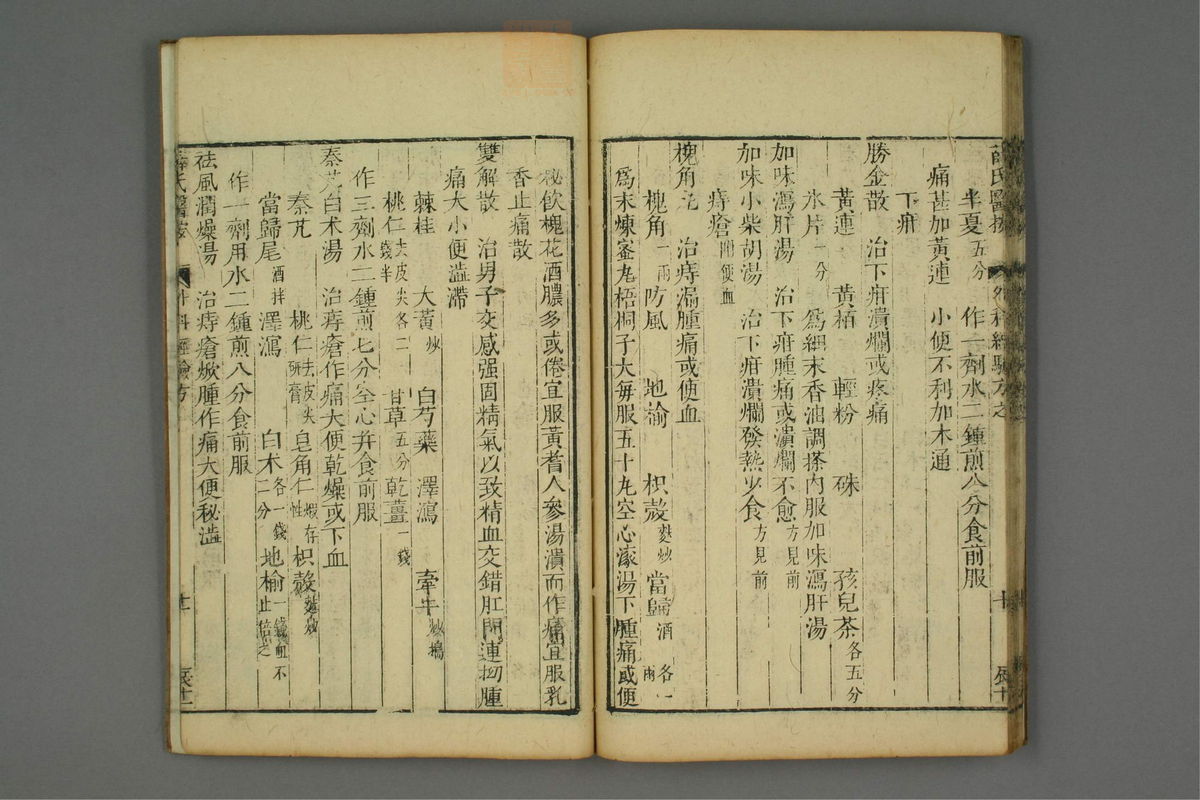 薛氏醫按 外科經驗方 十 辰十
半夏五分 作一劑水二鍾煎八分食前服
痛甚加黃連 小便不利加木通
下疳
勝金散 治下疳潰爛或疼痛
黃連 黃栢 輕粉 硃 孩兒茶各五分
氷片一分 爲細末香油調搽內服加味瀉肝湯
加味瀉肝湯 治下疳腫痛或潰爛不愈方見前
加味小柴胡湯 治下疳潰爛發熱少食方見前
痔瘡附便血
槐角丸 治痔漏腫痛或便血
槐角一兩 防風 地榆 枳殼麩炒 當歸酒 各一兩
爲末煉蜜丸梧桐子大每服五十丸空心滾湯下腫痛或便
秘飲槐花酒膿多或倦宜服黃耆人參湯潰而作痛宜服乳
香止痛散
雙解散 治男子交感强固精氣以致精血交錯肛門連拗腫
痛大小便澁滯
辣桂 大黃炒 白芍藥 澤瀉 牽牛炒搗
桃仁去皮尖各二錢半 甘草五分 乾薑一錢
作三劑水二鍾煎七分空心并食前服
秦艽白术湯 治痔瘡作痛大便乾燥或下血
秦艽 桃仁去皮尖研膏 皂角仁煆存性 枳殼麩炒
當歸尾酒拌 澤瀉 白术各一錢二分 地榆一錢血不止倍之
作一劑用水二鍾煎八分食前服
祛風潤燥湯 治痔瘡焮腫作痛大便秘澁
薛氏醫按 外科經驗方 十一 辰十一